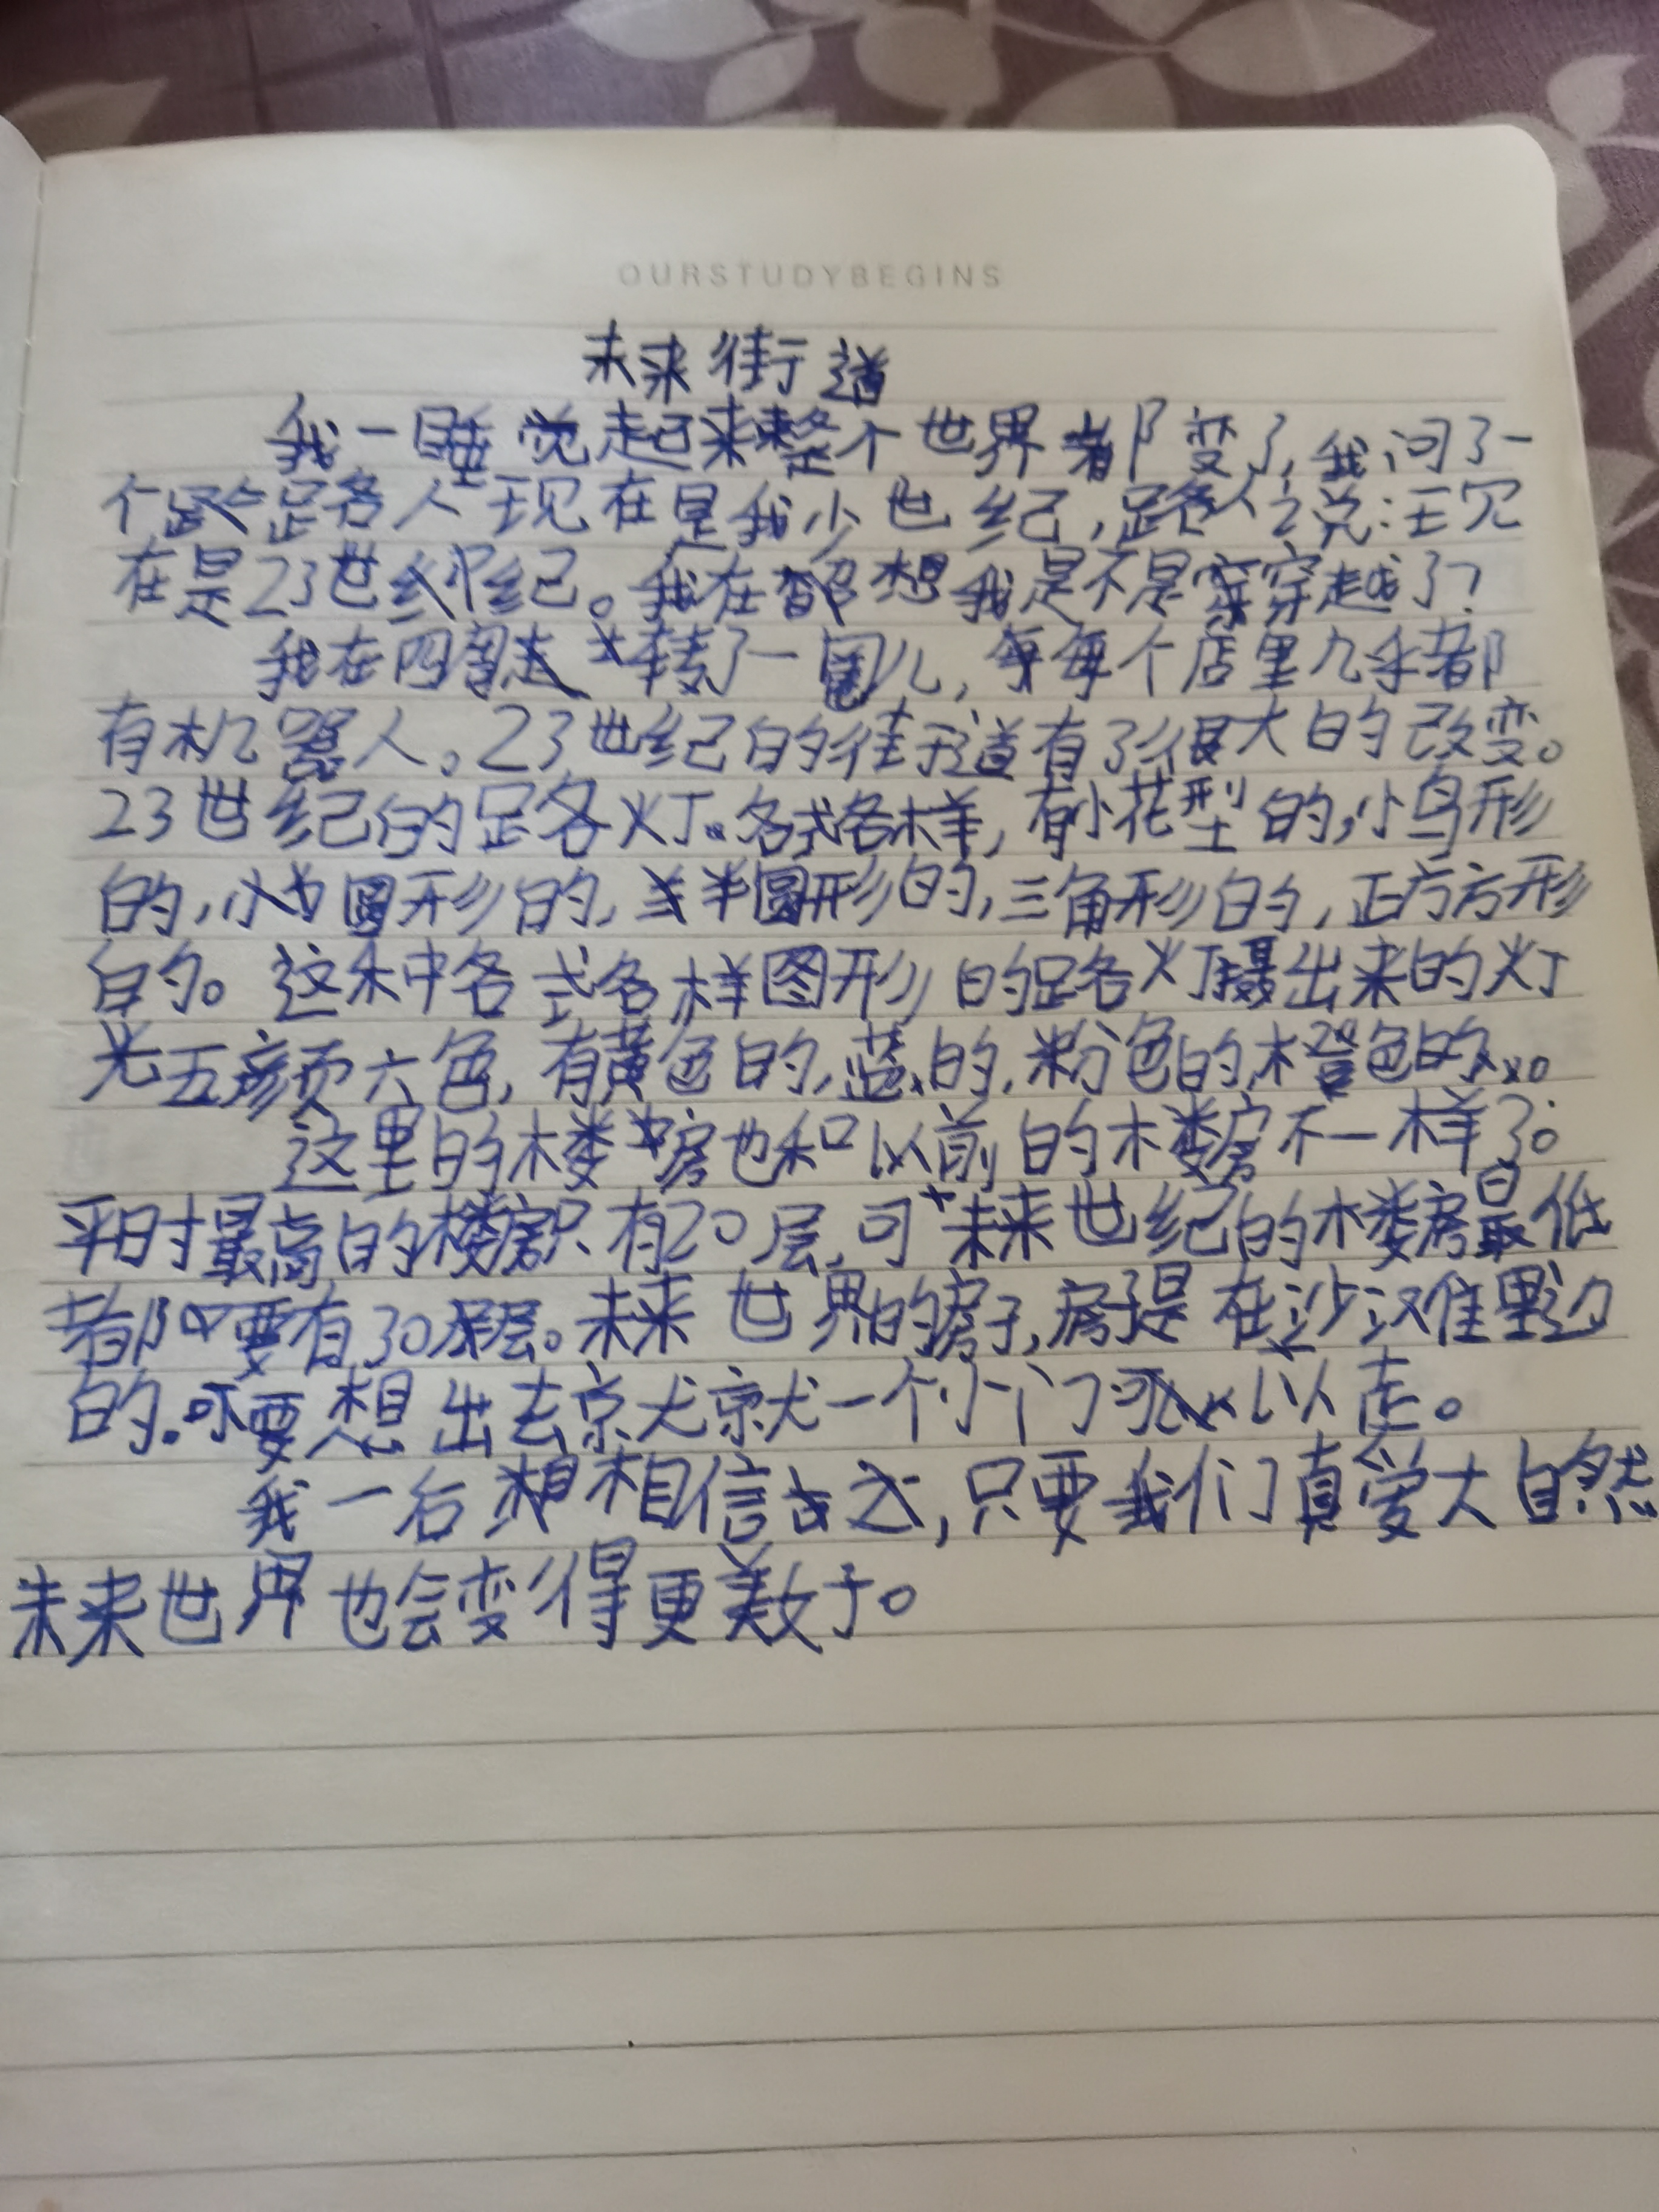 OURSTUDYBEGINS
未来街道
我一睡觉起来整个世界都变了,我问了一
个路人现在是我少世纪,路人说:现
在是23世纪。我在想我是不是穿越了?
我在四转了一圈儿,每个店里几乎都
有机器人。23世纪的街道有了很大的改变。
23世纪的路灯。各式各样,有小花型的,小鸟形
的,小圆形的,半圆形的,三角形的,正方形
的。这各式各样图形的路灯摄出来的灯
光五颜六色,有黄色的,蓝的,粉色的,橙色的
这里的楼房也和以前的楼房不一样了:
平时最高的楼房只有20层,可未来世纪的楼房最低
都要有30层。未来世界的房子,房子是在沙滩里边
的。要想出去就一个小门可以走。
我相信,只要我们真爱大自然
未来世界也会变得更美好。